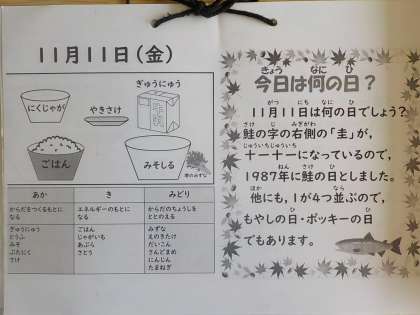 11月11日(金)
にくじゃが
やきさけ
ぎゅうにゅう
ごはん
みそしる
あか
き
みどり
からだをつくるもとに
なる
エネルギーのもとに
なる
からだのちょうしを
ととのえる
ぎゅうにゅう
とうふ
みそ
ぶたにく
さけ
ごはん
じゃがいも
あぶら
さとう
みずな
えのきたけ
だいこん
さんどまめ
にんじん
たまねぎ
きょう なに ひ
今日は何の日?
がつ にち なに ひ
11月11日は何の日でしょう?
さけ じ みぎがわ
鮭の字の右側の「圭」が,
じゅういちじゅういち
十一十一になっているので,
ねん さけ ひ
1987年に鮭の日としました。
ほか なら
他にも,1が4つ並ぶので,
ひ ひ
もやしの日・ポッキーの日
でもあります。